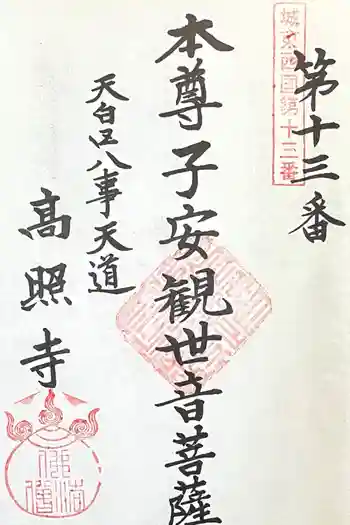 城東西国第十三番
第十三番
本尊子安観世音菩薩
天白区八事天道
高照寺